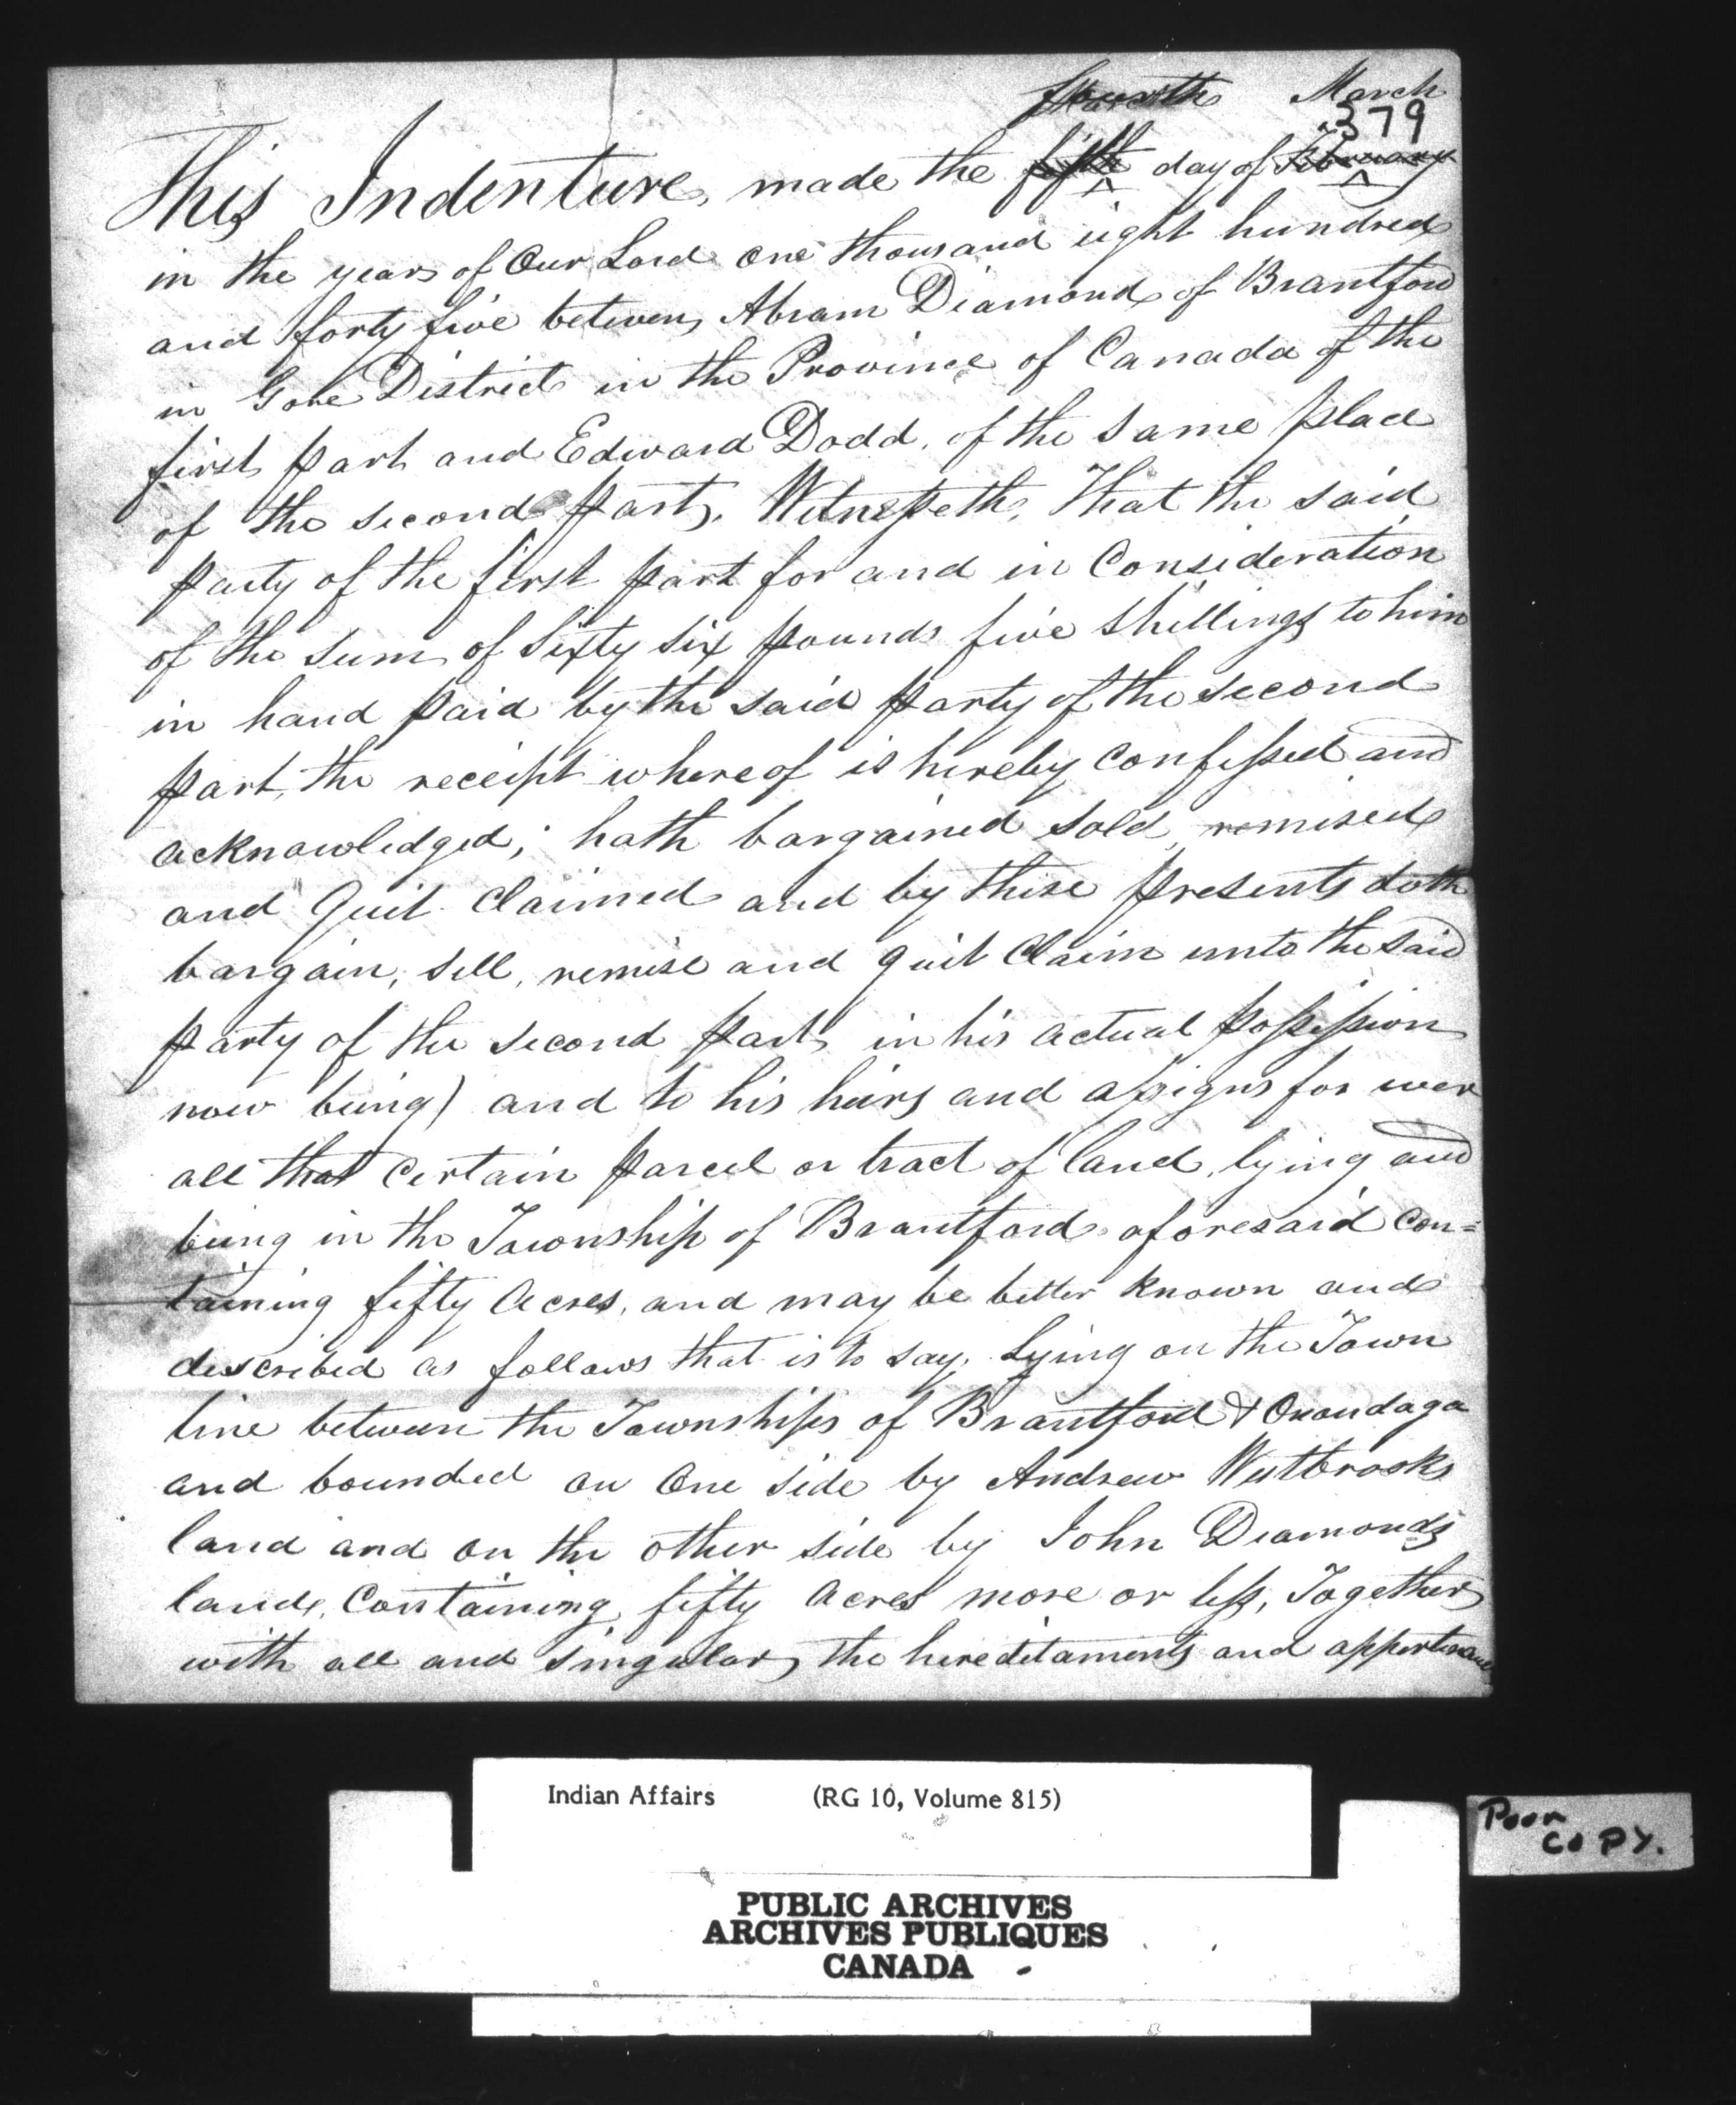 fourth March
379
This Indenture made the fifth day of February
in the year of Our Lord one thousand eight hundred
and forty five between Abram Diamond of Brantford
in Gore District in the Province of Canada of the
first part and Edward Dodd, of the same place
of the second part, Witnesseth, That the said
party of the first part for and in Consideration
of the sum of Sixty six pounds five shillings to him
in hand paid by the said party of the second
part, the receipt whereof is hereby confessed and
acknowledged; hath bargained sold, remised
and Quit Claimed and by these presents doth
bargain, sell, remise and quit Claim unto the said
party of the second part, in his actual possession
now being) and to his heirs and assigns for ever
all that certain parcel or tract of land, lying and
being in the Township of Brantford aforesaid Con=
taining fifty Acres, and may be better known and
described as follows that is to say, Lying on the Town
line between the Townships of Brantford & Onondaga
and bounded on One side by Andrew Westbrooks
land and on the other side by John Diamonds
land, Containing fifty Acres more or less, Together
with all and singular, the hereditaments and appurtenances
Indian Affairs (RG 10, Volume 815)
Poor
COPY.
PUBLIC ARCHIVES
ARCHIVES PUBLIQUES
CANADA